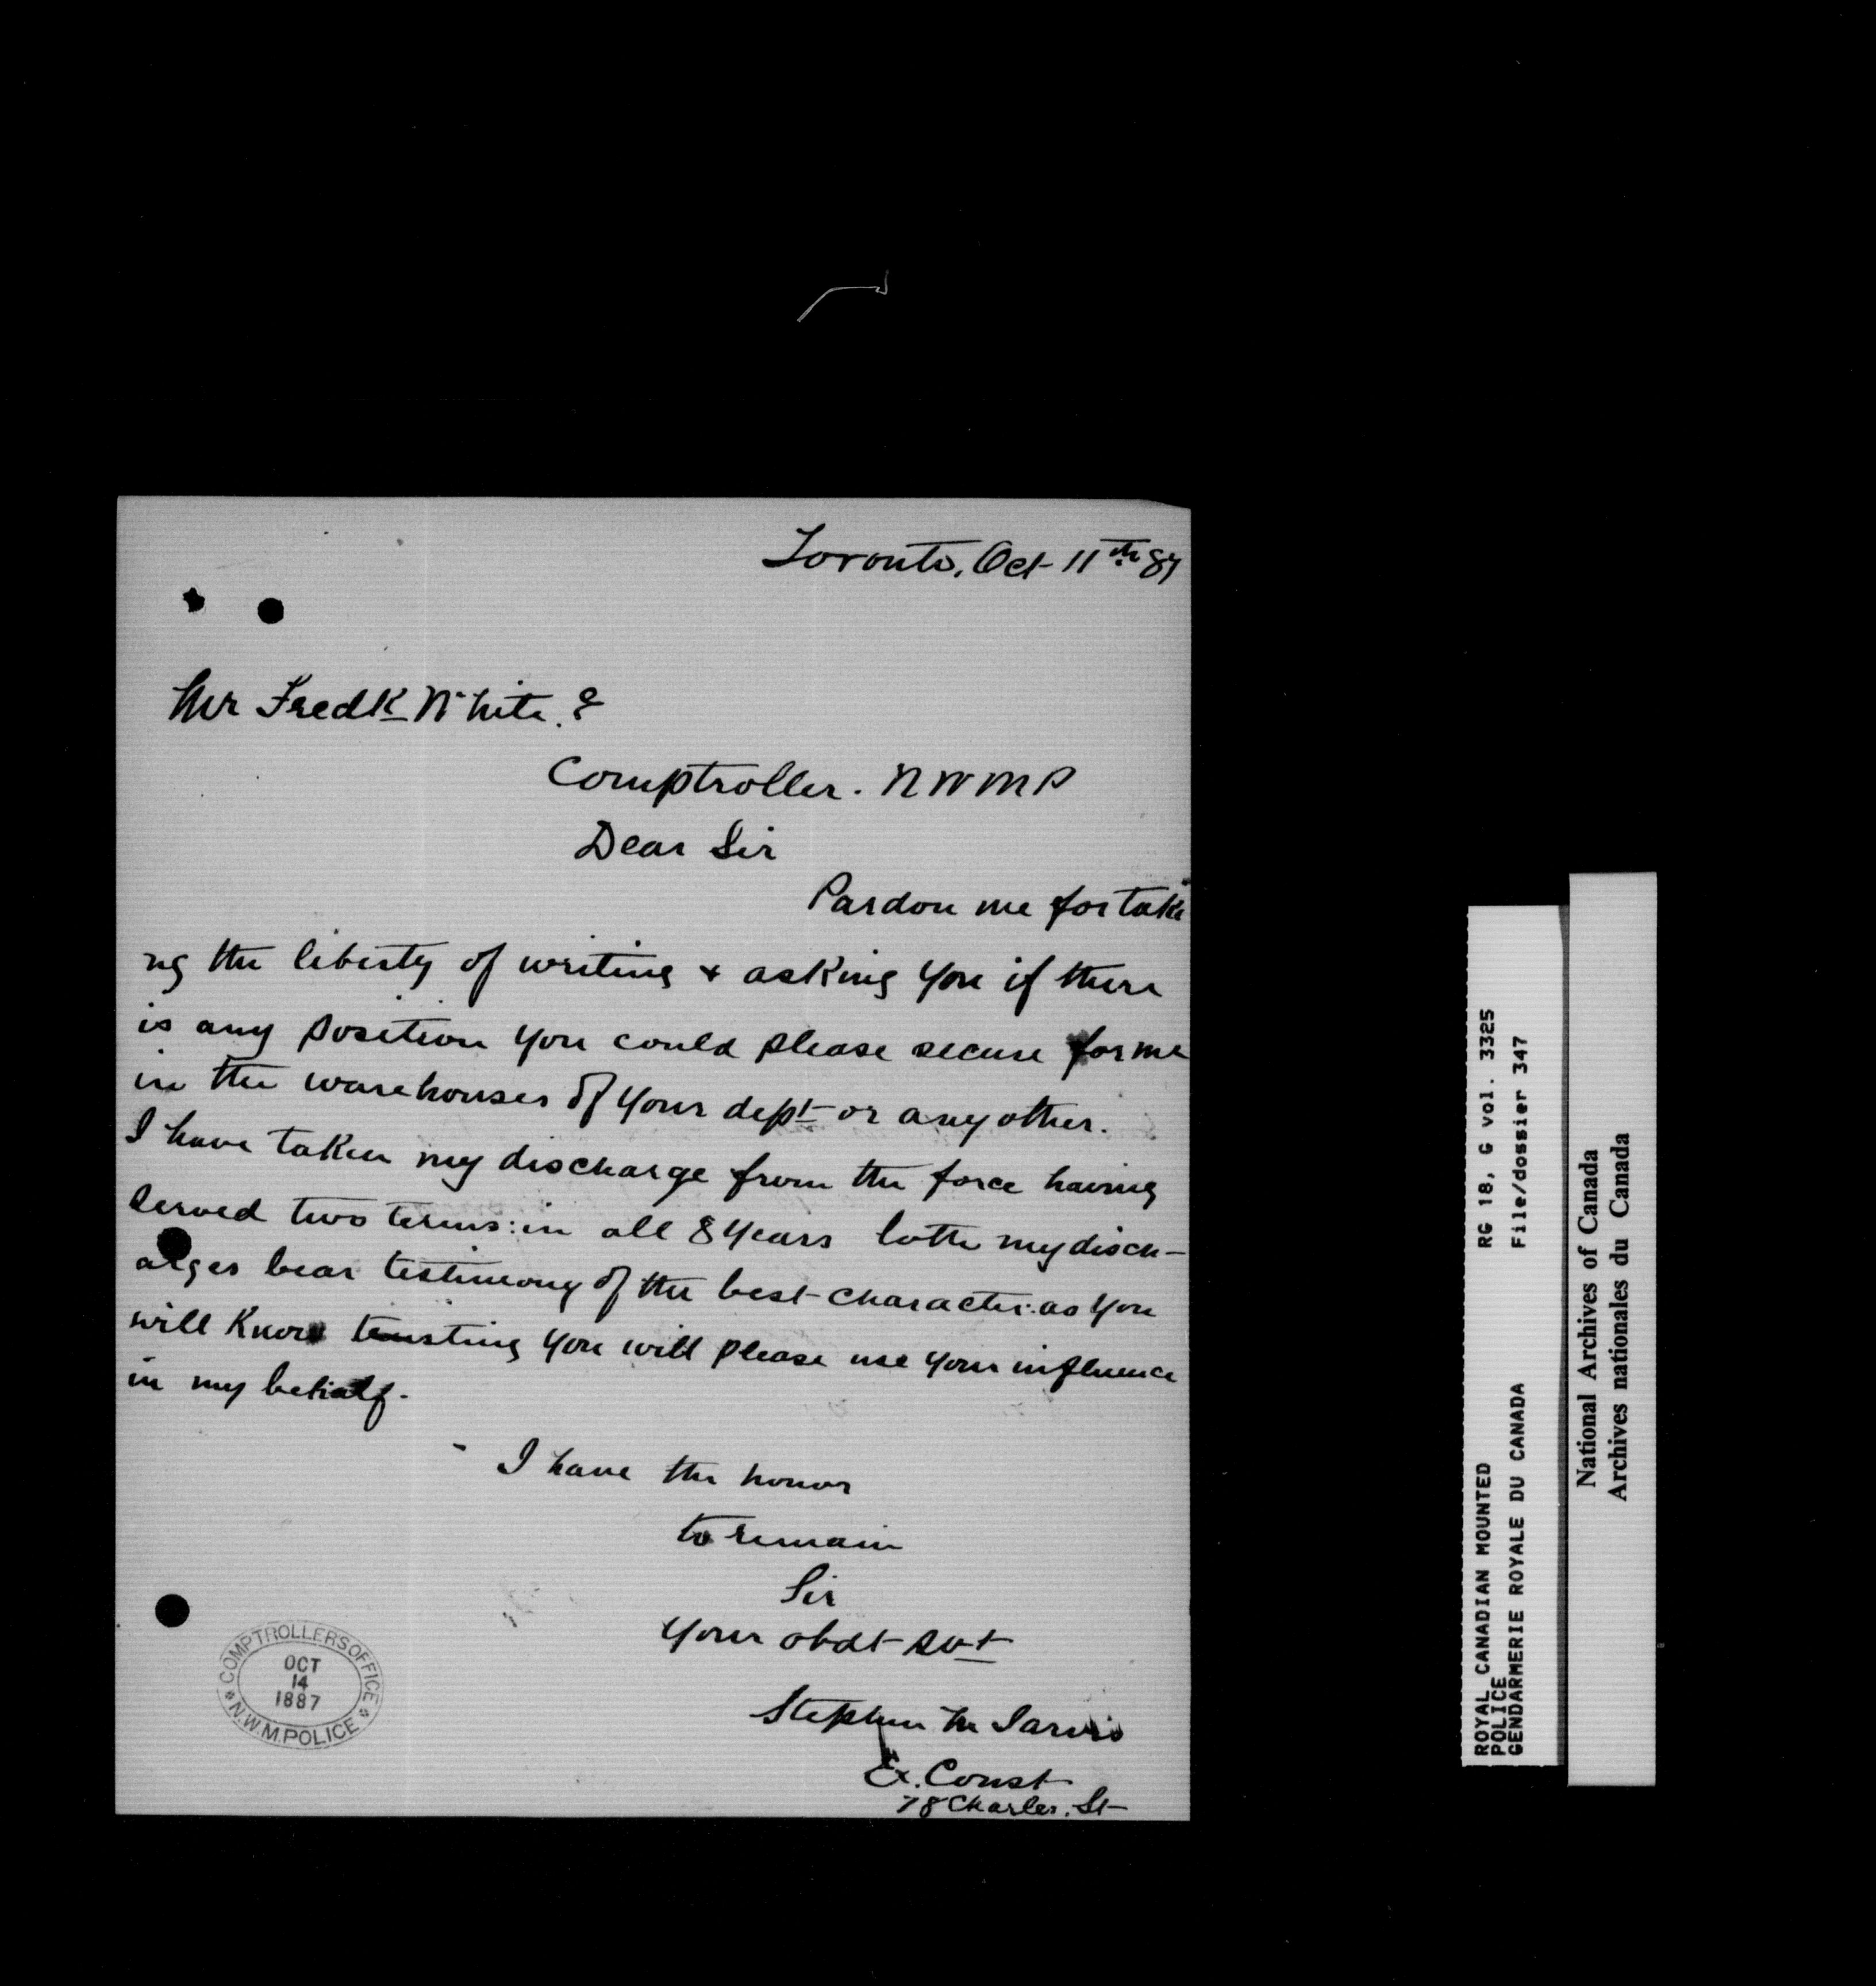 Toronto, Oct 11th 87
Mr Fredk White.
Comptroller. NWMP
Dear Sir
Pardon me for taki
ng the liberty of writing & asking you if there
is any position you could please secure for me
in the warehouses of your dept or any other.
I have taken my discharge from the force having
served two terms: in all 8 years both my disch-
arges bear testimony of the best character: as you
will know trusting you will please use your influence
in my behalf.
I have the honor
to remain
Sir
Your obdt svt
Stephen M Jarvis
Ex. Const
78 Charles. St
COMPTROLLER'S OFFICE
OCT
14
1887
N.W.M. POLICE
ROYAL CANADIAN MOUNTED RG 18, G vol. 3325
POLICE
GENDARMERIE ROYALE DU CANADA File/dossier 347
National Archives of Canada
Archives nationales du Canada